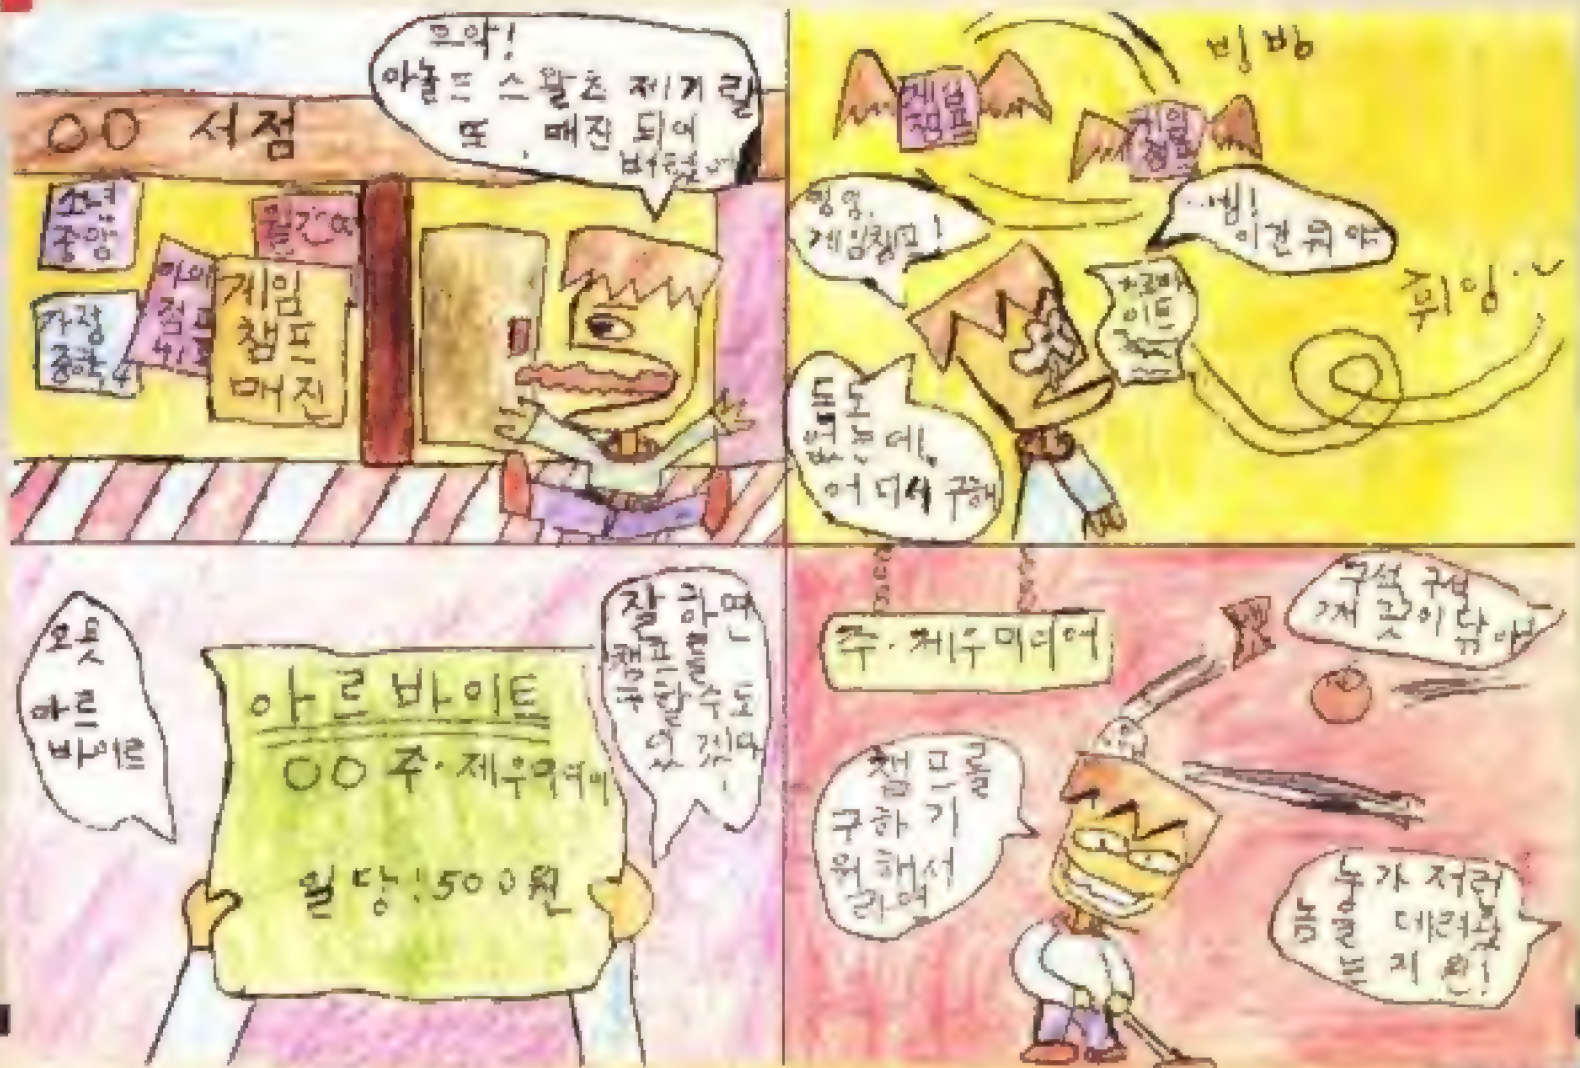 OO 서점
프악!
아놀드 스왈츠 제기랄
또, 매진 되어
버렸어
소년
중앙
월간
아이
점프
게임
챔프
매진
빙빙
게임
챔프
게임
챔프
형잉,
게임챔프!
넴!
이건 뭐야
아르바
이트
휘잉
돈도
없는데,
어디서 구해
오옷
아르
바이트
아르바이트
OO 주·제우미디어
월당!500원
잘하면
챔프를
구할수도
있겠다
!
주·제우미디어
구석구석
깨끗이 닦아
챔프를
구하기
위해서
라며
누가 저런
놈을 데려
지 원!